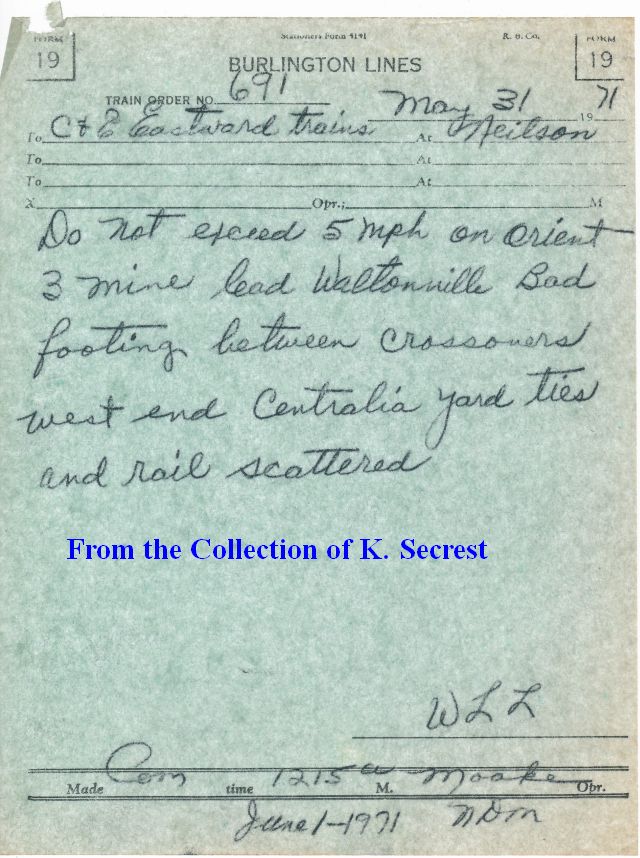 Stationers Form 4191 R. O. Co.
FORM 19 FORM 19
BURLINGTON LINES
TRAIN ORDER NO. 691 May 31 1971
To C & E Eastward trains At Neilson
To At
To At
X Opr.; M
Do not exceed 5 mph on Orient
3 mine lead Waltonville Bad
footing between crossovers
west end Centralia yard ties
and rail scattered
From the Collection of K. Secrest
WLL
Made Com time 1215 a M. Moake Opr.
June 1-1971 NDM